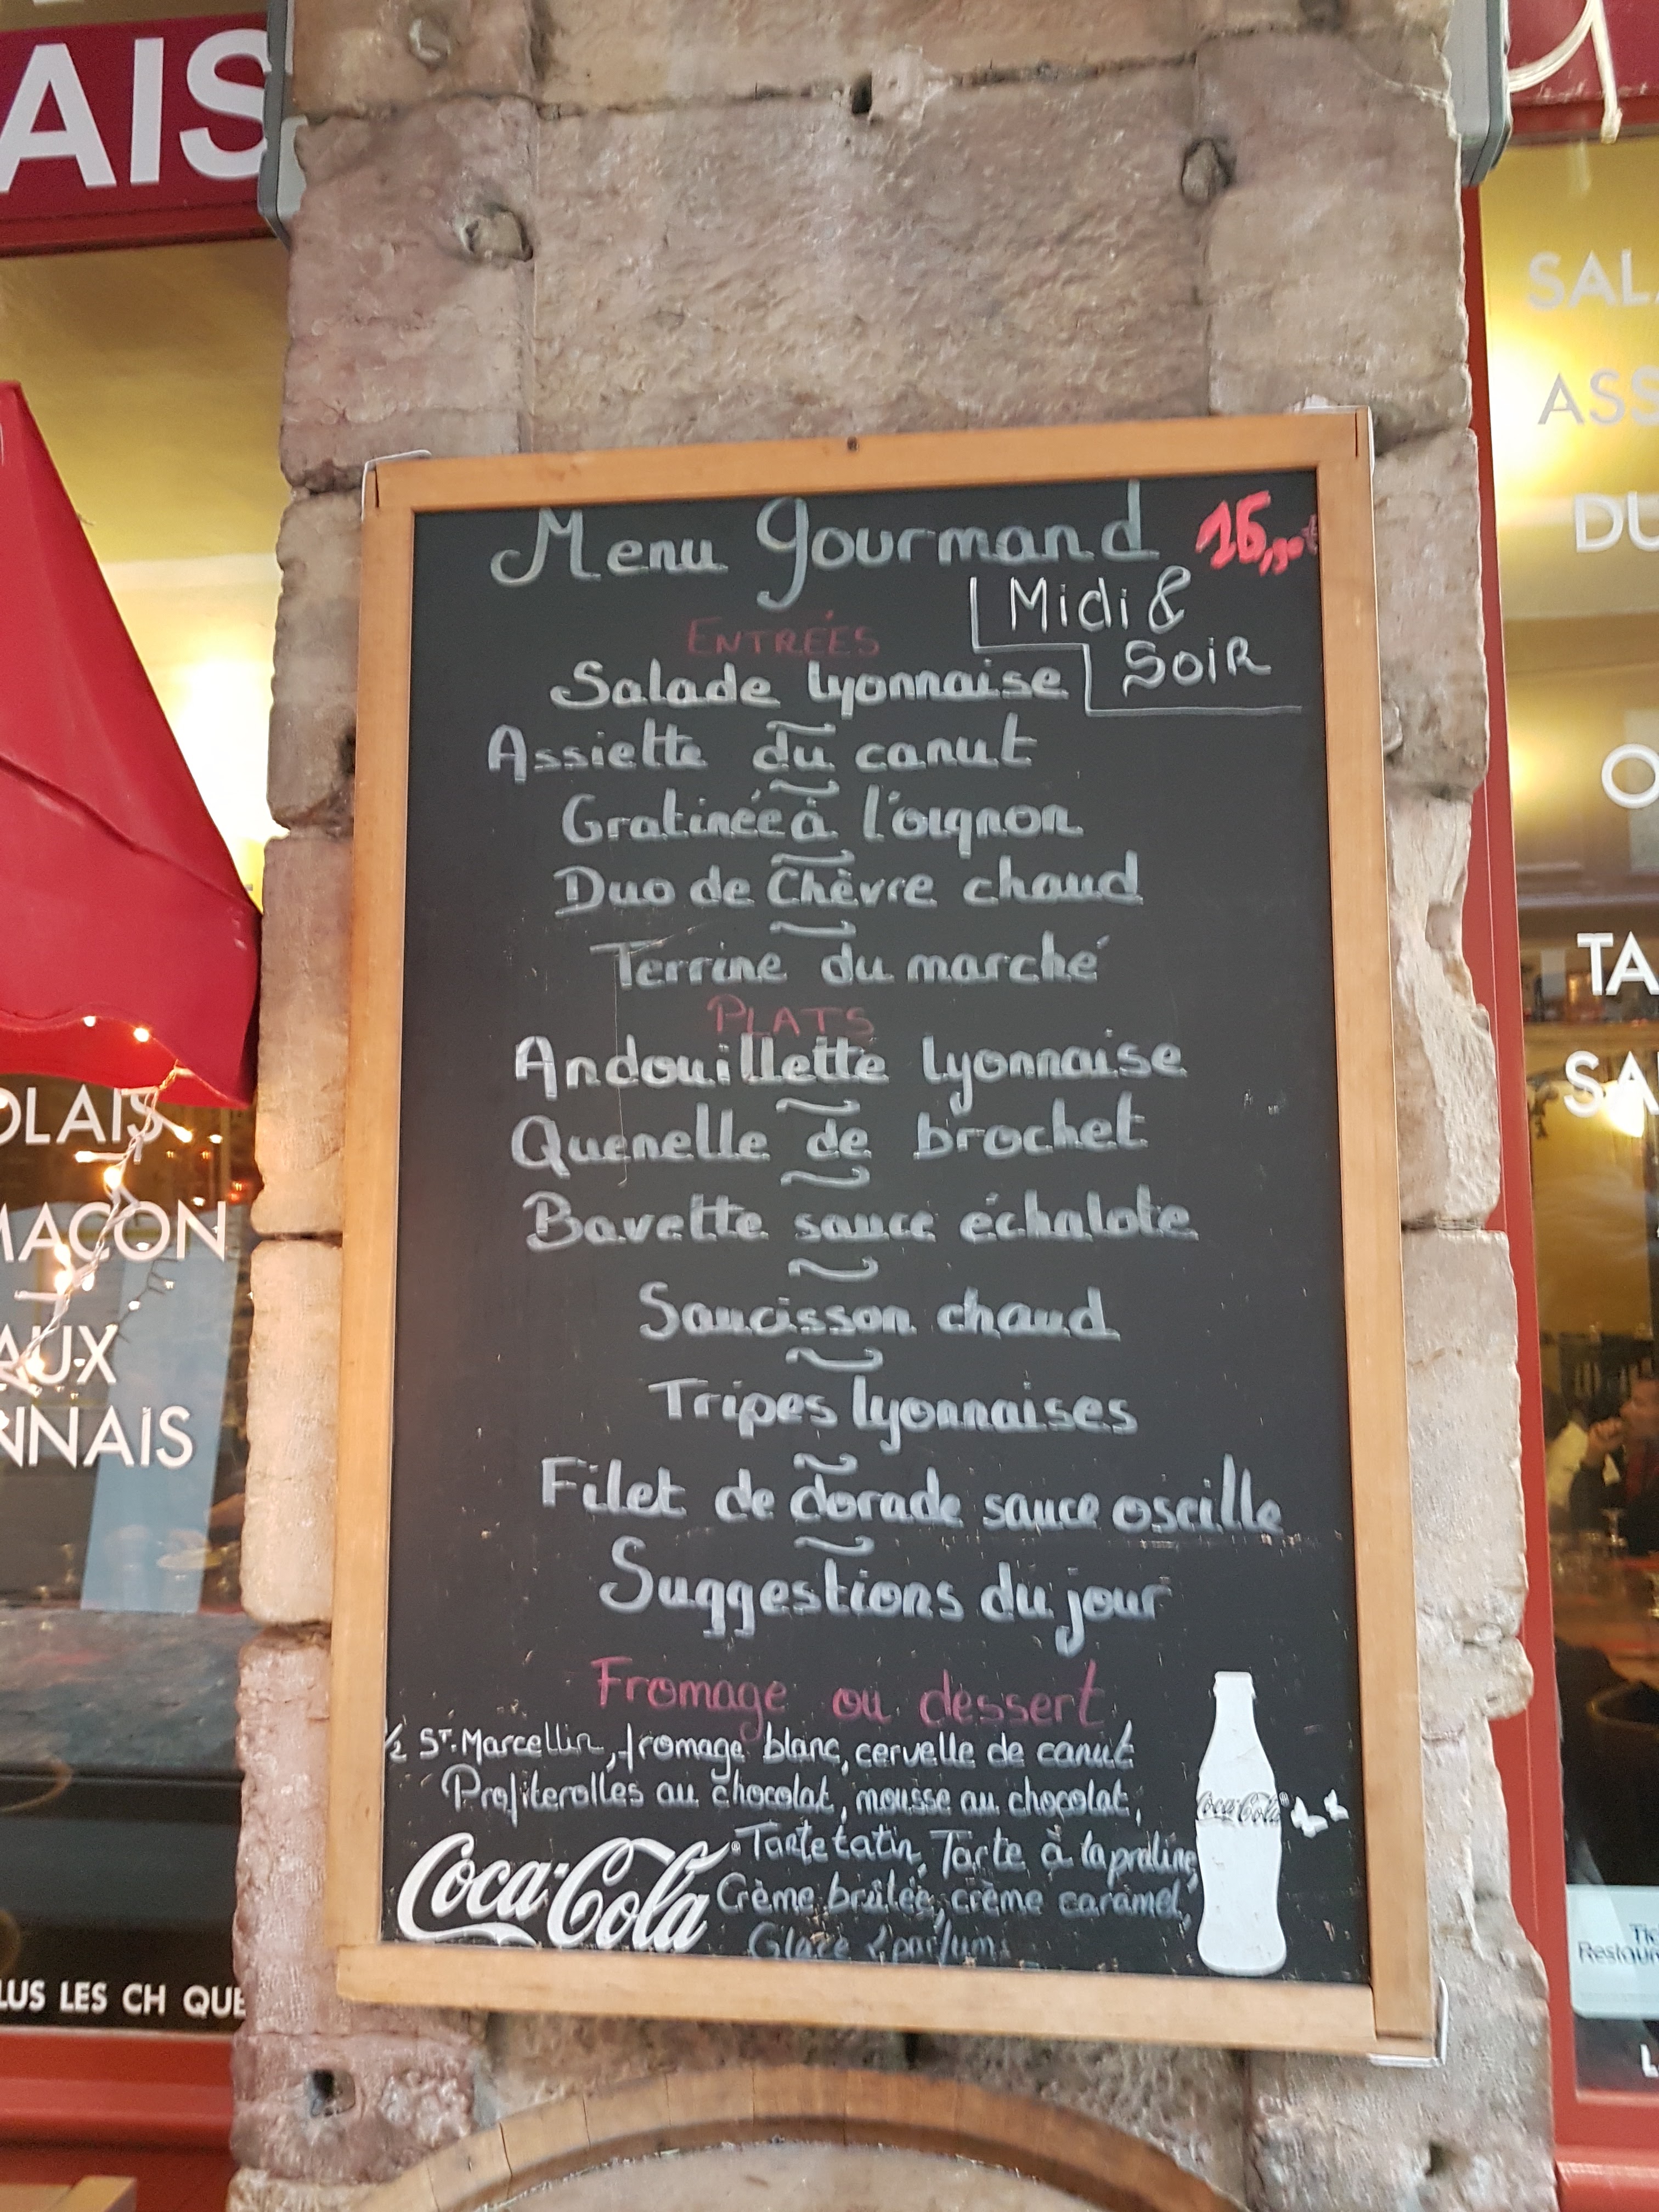 AIS
Menu gourmand
Midi &
Soir
ENTRÉES
Salade lyonnaise
Assiette du canut
Gratinée à l'oignon
Duo de Chèvre chaud
Terrine du marché
PLATS
Andouillette lyonnaise
Quenelle de brochet
Bavette sauce échalote
Saucisson chaud
Tripes lyonnaises
Filet de dorade sauce oseille
Suggestions du jour
Fromage ou dessert
½ ST. Marcellin, fromage blanc, cervelle de canut
Profiterolles au chocolat, mousse au chocolat,
Tarte tatin, Tarte à la praline,
Crème brûlée, crème caramel,
Glace 2 parfums
Coca-Cola
Coca-Cola
OLAIS
MACON
AUX
NNAIS
LUS LES CH QUE
SAL
ASS
DU
O
TA
SA
Tic
Restaur
L